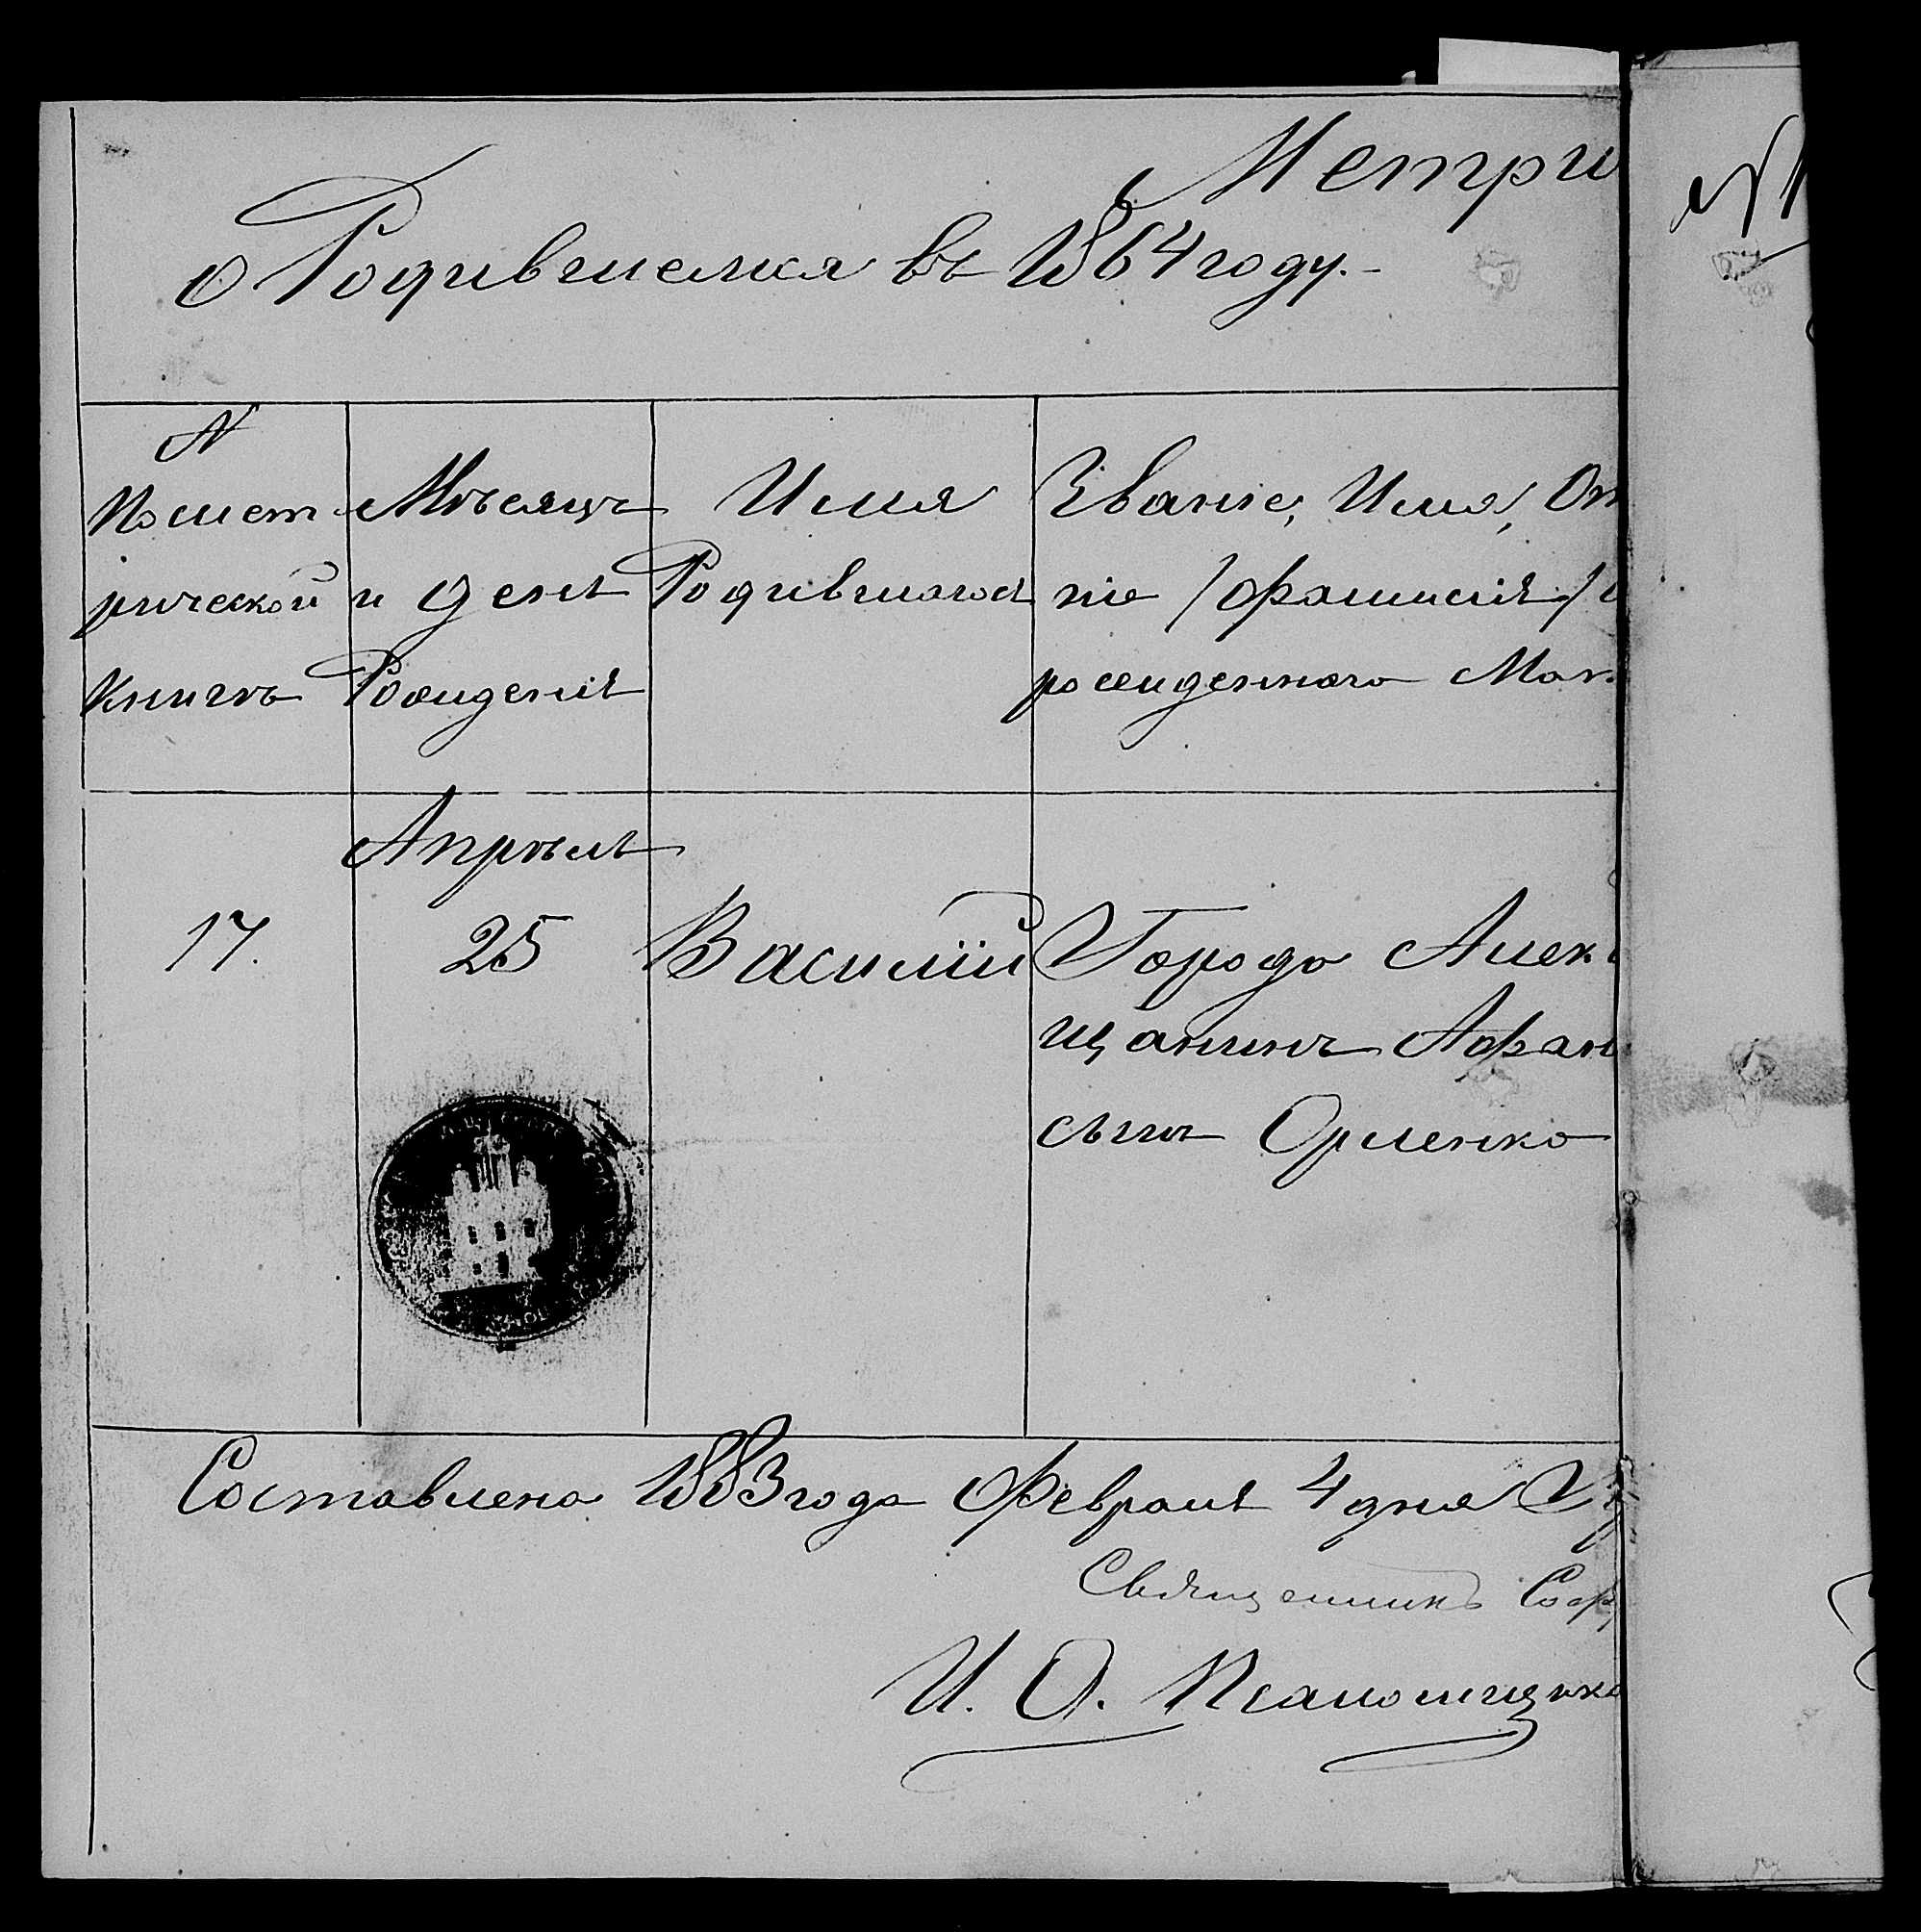 Метри
о Родившемся въ 1864 году.-
N
По мет
рической
книгѣ
Мѣсяцъ
и день
Рожденія
Имя
Родившагося
Званіе, Имя, От
тіе /фамилія/
рожденнаго Мат
17.
Апрѣль
25
Василій
Города Алек
щанинъ Афан
сынъ Орленко
Составлена 1883 года Февраля 4 дня
Священникъ
И. О. Псаломщика